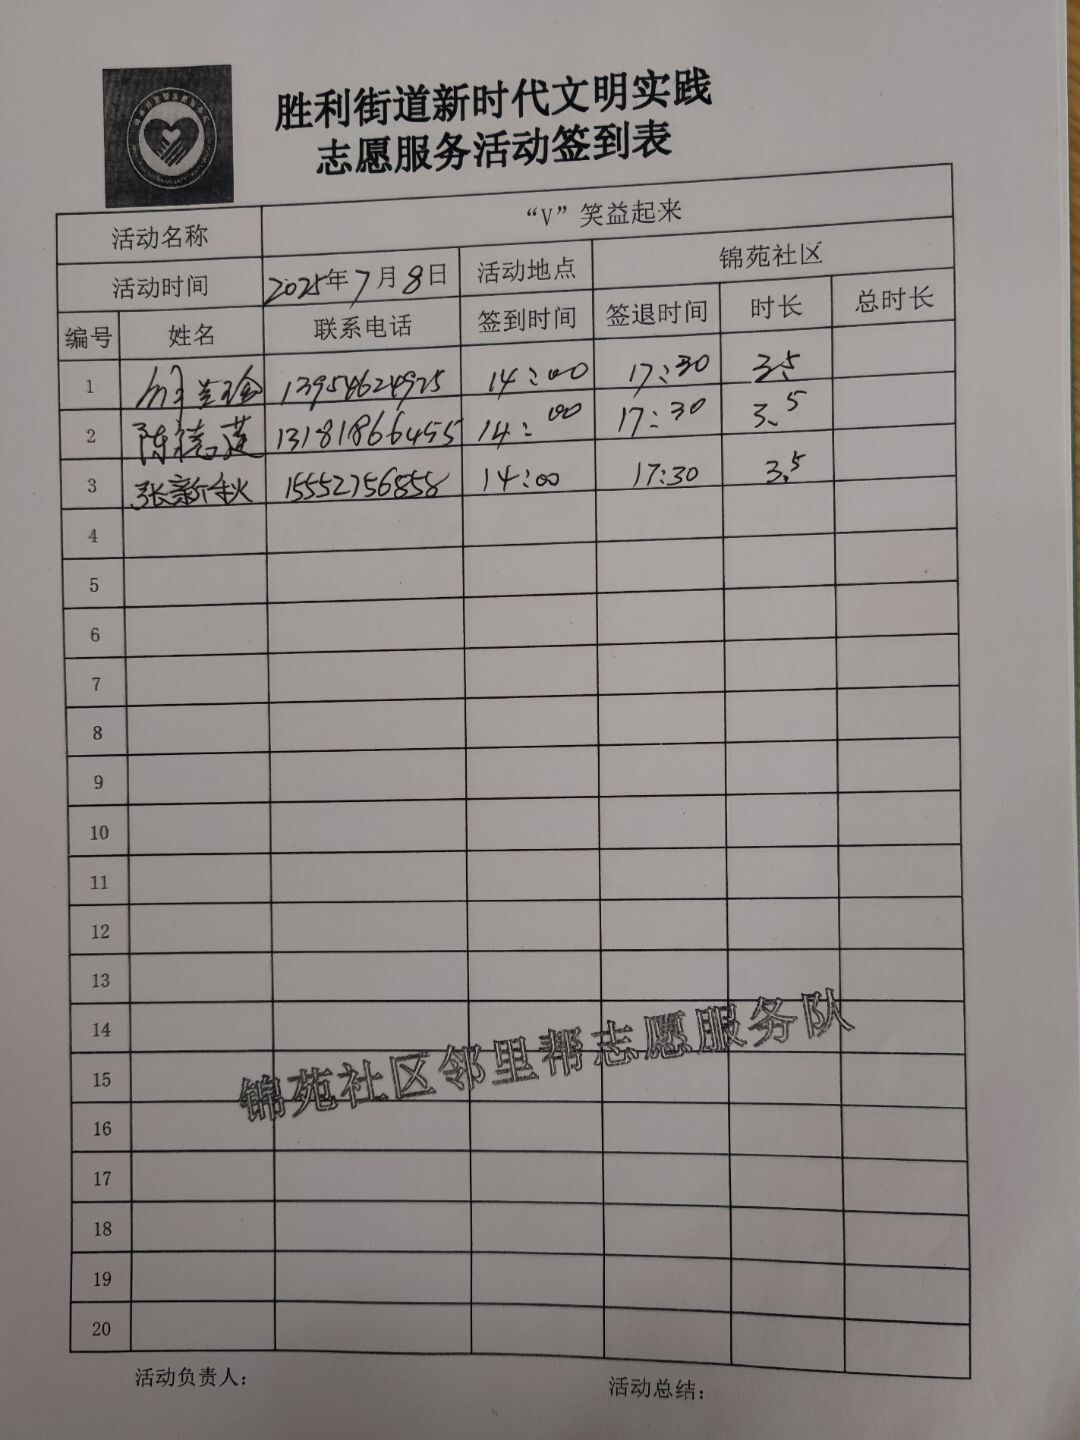 胜利街道新时代文明实践
志愿服务活动签到表
活动名称 “V”笑益起来
活动时间 2025年7月8日 活动地点 锦苑社区
编号 姓名 联系电话 签到时间 签退时间 时长 总时长
1 13954624925 14:00 17:30 3.5
2 陈德莲 13181866455 14:00 17:30 3.5
3 张新秋 15552756858 14:00 17:30 3.5
4
5
6
7
8
9
10
11
12
13
14
15
16
17
18
19
20
锦苑社区邻里帮志愿服务队
活动负责人: 活动总结: